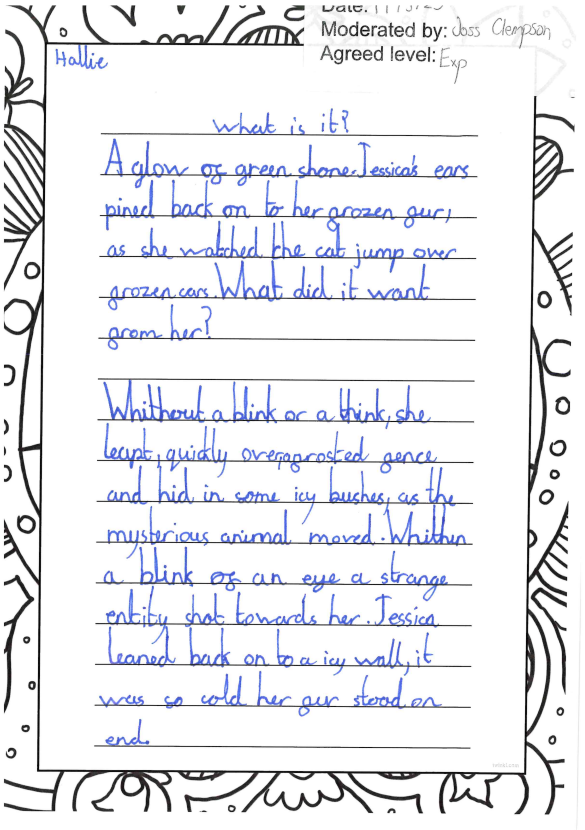 Date: 11/3/25
Moderated by: Joss Clempson
Agreed level: Exp
Hallie
What is it?
A glow of green shone. Jessica's ears
pined back on to her frozen fur,
as she watched the cat jump over
frozen cars. What did it want
from her?
Whithout a blink or a think, she
leapt, quickly over a frosted fence
and hid in some icy bushes, as the
mysterious animal moved. Whithin
a blink of an eye a strange
entity shot towards her. Jessica
leaned back on to a icy wall, it
was so cold her fur stood on
end.